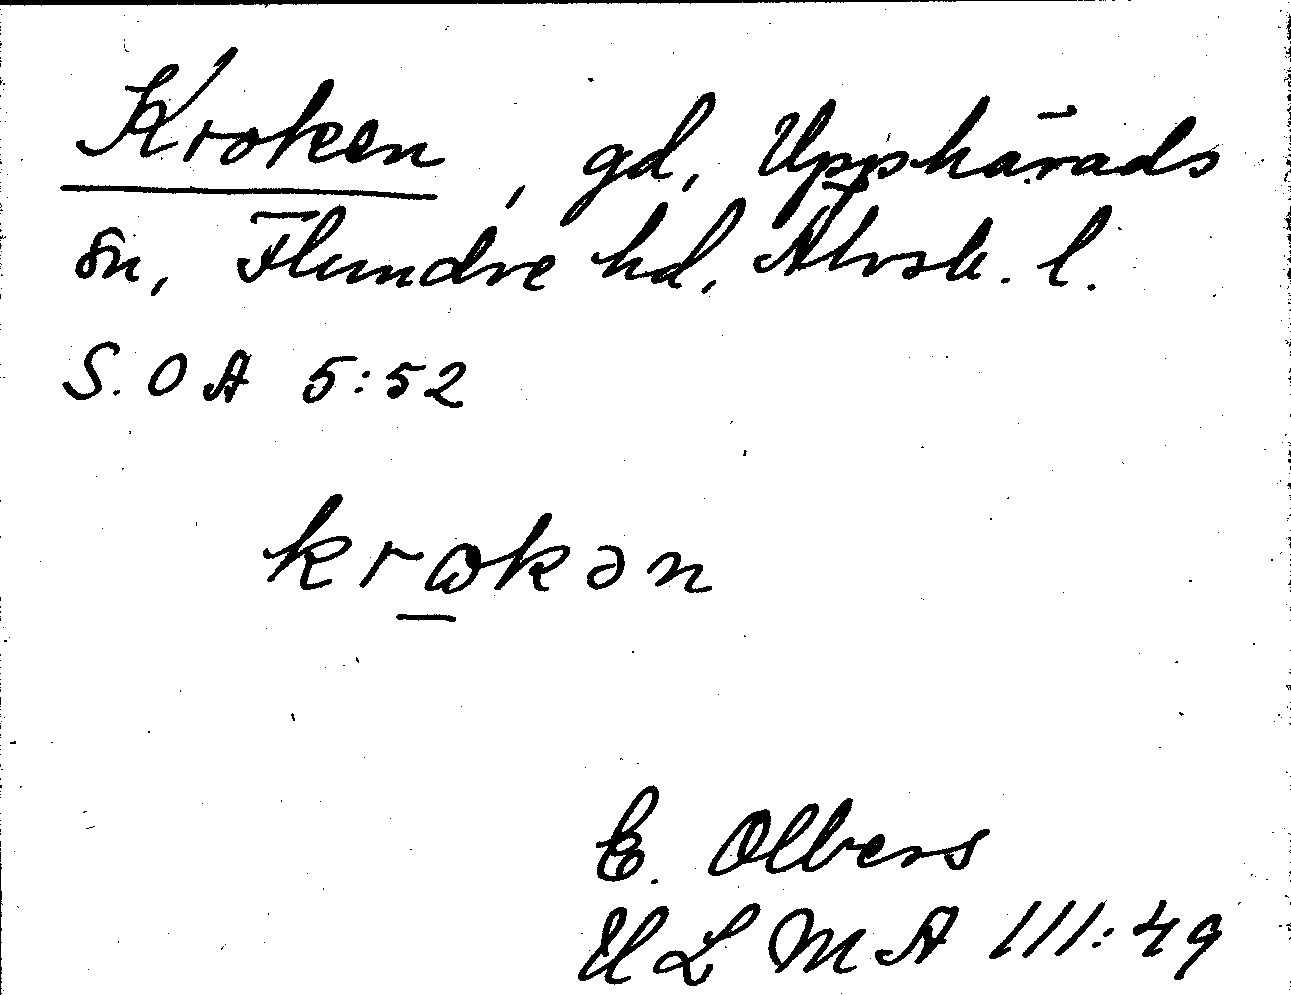 Kroken, gd, Upphärads
sn, Flundre hd, Älvsb. l.
S.O A 5:52
krɷkən
E. Olbers
ULMA 111:49